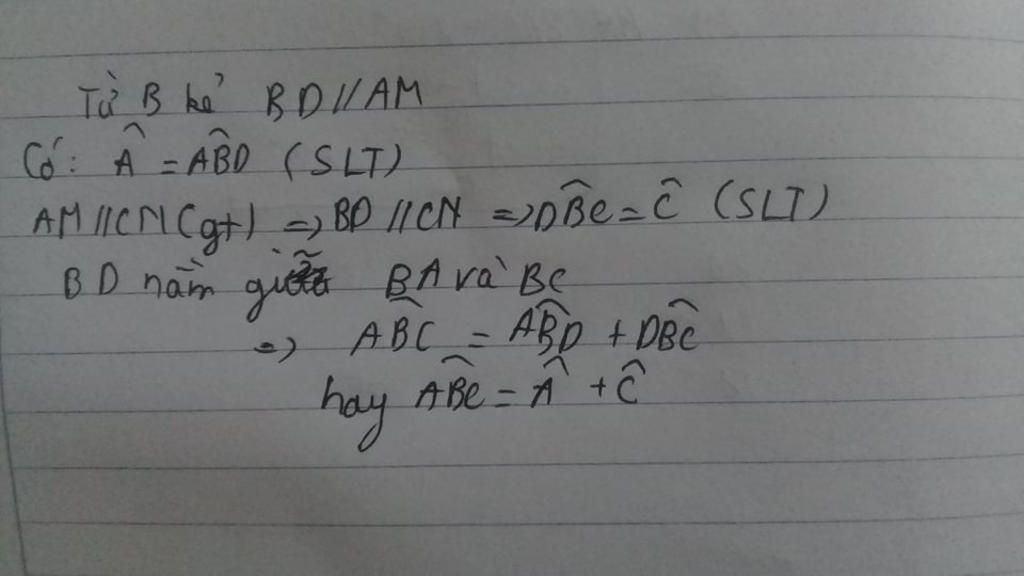 Từ B kẻ BD//AM
Có: Â = AB̂D (SLT)
AM//CN(gt) => BD//CN => DB̂C = Ĉ (SLT)
BD nằm giữa BA và BC
=> AB̂C = AB̂D + DB̂C
hay AB̂C = Â + Ĉ